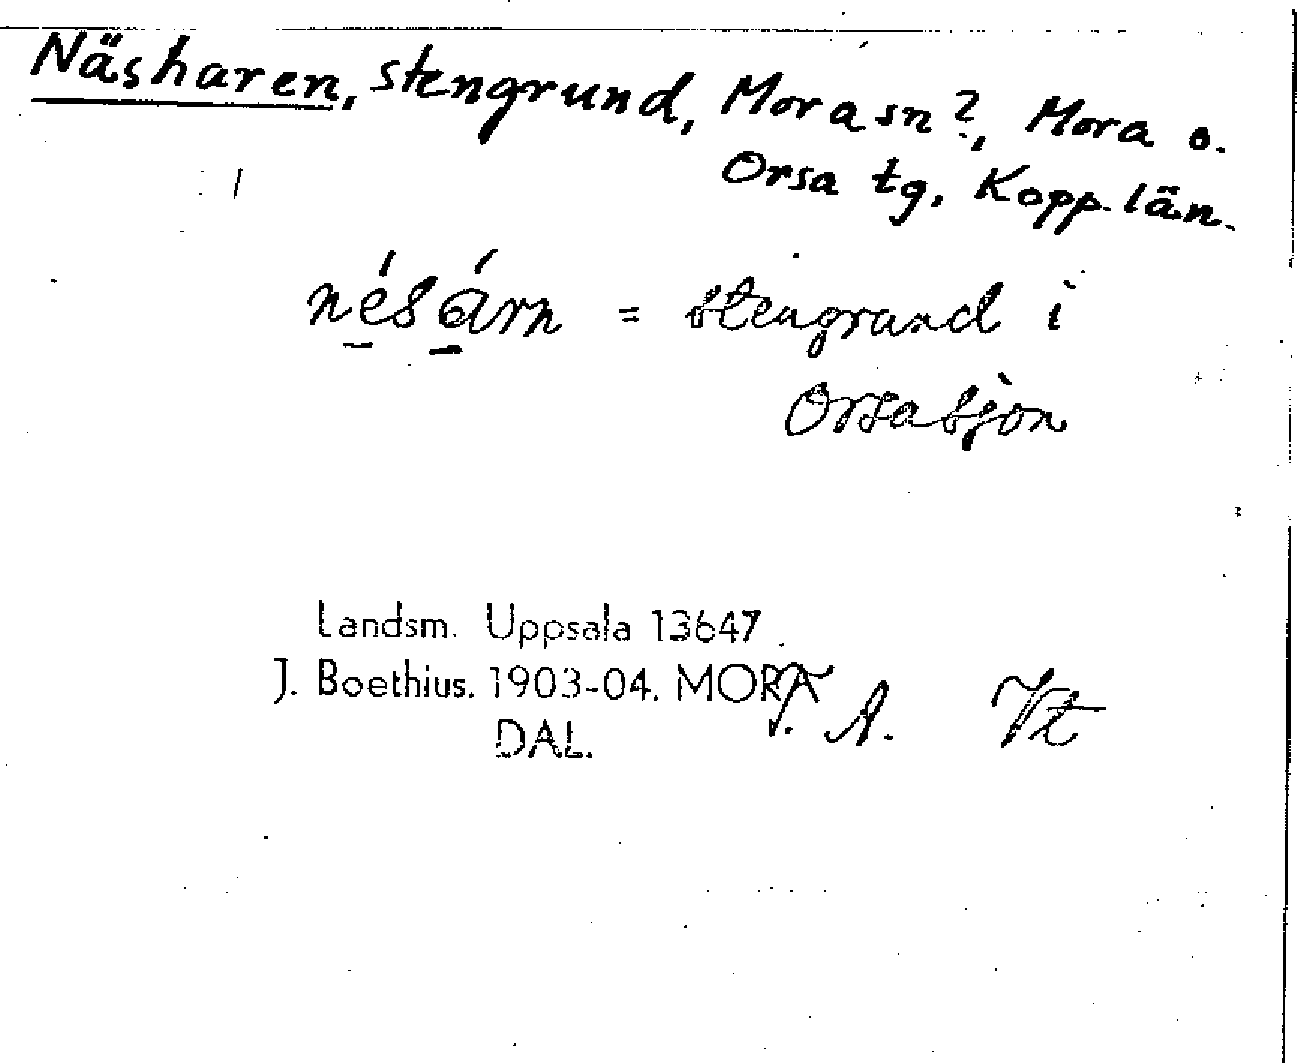 Näsharen, stengrund, Mora sn?, Mora o.
Orsa tg, Kopp. län.
nésárn = stengrund i
Orsasjön
Landsm. Uppsala 13647.
J. Boethius. 1903-04. MORA
DAL.
T. A. Vt